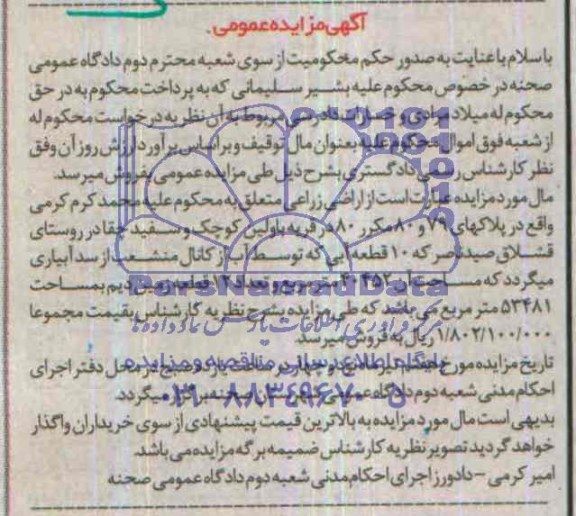 آگهی مزایده عمومی
با سلام با عنایت به صدور حکم محکومیت از سوی شعبه محترم دوم دادگاه عمومی
صحنه در خصوص محکوم علیه بشیر سلیمانی که به پرداخت محکوم به در حق
محکوم له میلاد مرادی و خسارات دادرسی مربوط به آن نظر به درخواست محکوم له
از شعبه فوق اموال محکوم علیه بعنوان مال توقیف و براساس برآورد ارزش روز آن وفق
نظر کارشناس رسمی دادگستری بشرح ذیل طی مزایده عمومی بفروش میرسد.
مال مورد مزایده عبارت است از اراضی زراعی متعلق به محکوم علیه محمد کرم کرمی
واقع در پلاکهای ۷۹ و ۸۰ مکرر ۸۰ در قریه باولین کوچک و سفید چقا در روستای
قشلاق صیدناصر که ۱۰ قطعه آبی که توسط آب از کانال منشعب از سد آبیاری
میگردد که مساحت آن متر مربع و تعداد ۱۲ قطعه زمین دیم بمساحت
۵۳۴۸۱ متر مربع می باشد که طی مزایده بشرح نظریه کارشناس بقیمت مجموعا
۱/۸۰۲/۱۰۰/۰۰۰ ریال به فروش میرسد.
تاریخ مزایده مورخ ساعت یازده صبح در محل دفتر اجرای
احکام مدنی شعبه دوم دادگاه عمومی شهرستان صحنه برگزار میگردد.
بدیهی است مال مورد مزایده به بالاترین قیمت پیشنهادی از سوی خریداران واگذار
خواهد گردید تصویر نظریه کارشناس ضمیمه برگه مزایده می باشد.
امیر کرمی - دادورز اجرای احکام مدنی شعبه دوم دادگاه عمومی صحنه
ParsNamadData
مرکز فرآوری اطلاعات پارس نماد داده ها
پایگاه اطلاع رسانی مناقصه و مزایده
۰۲۱-۸۸۳۴۹۶۷۰-۵